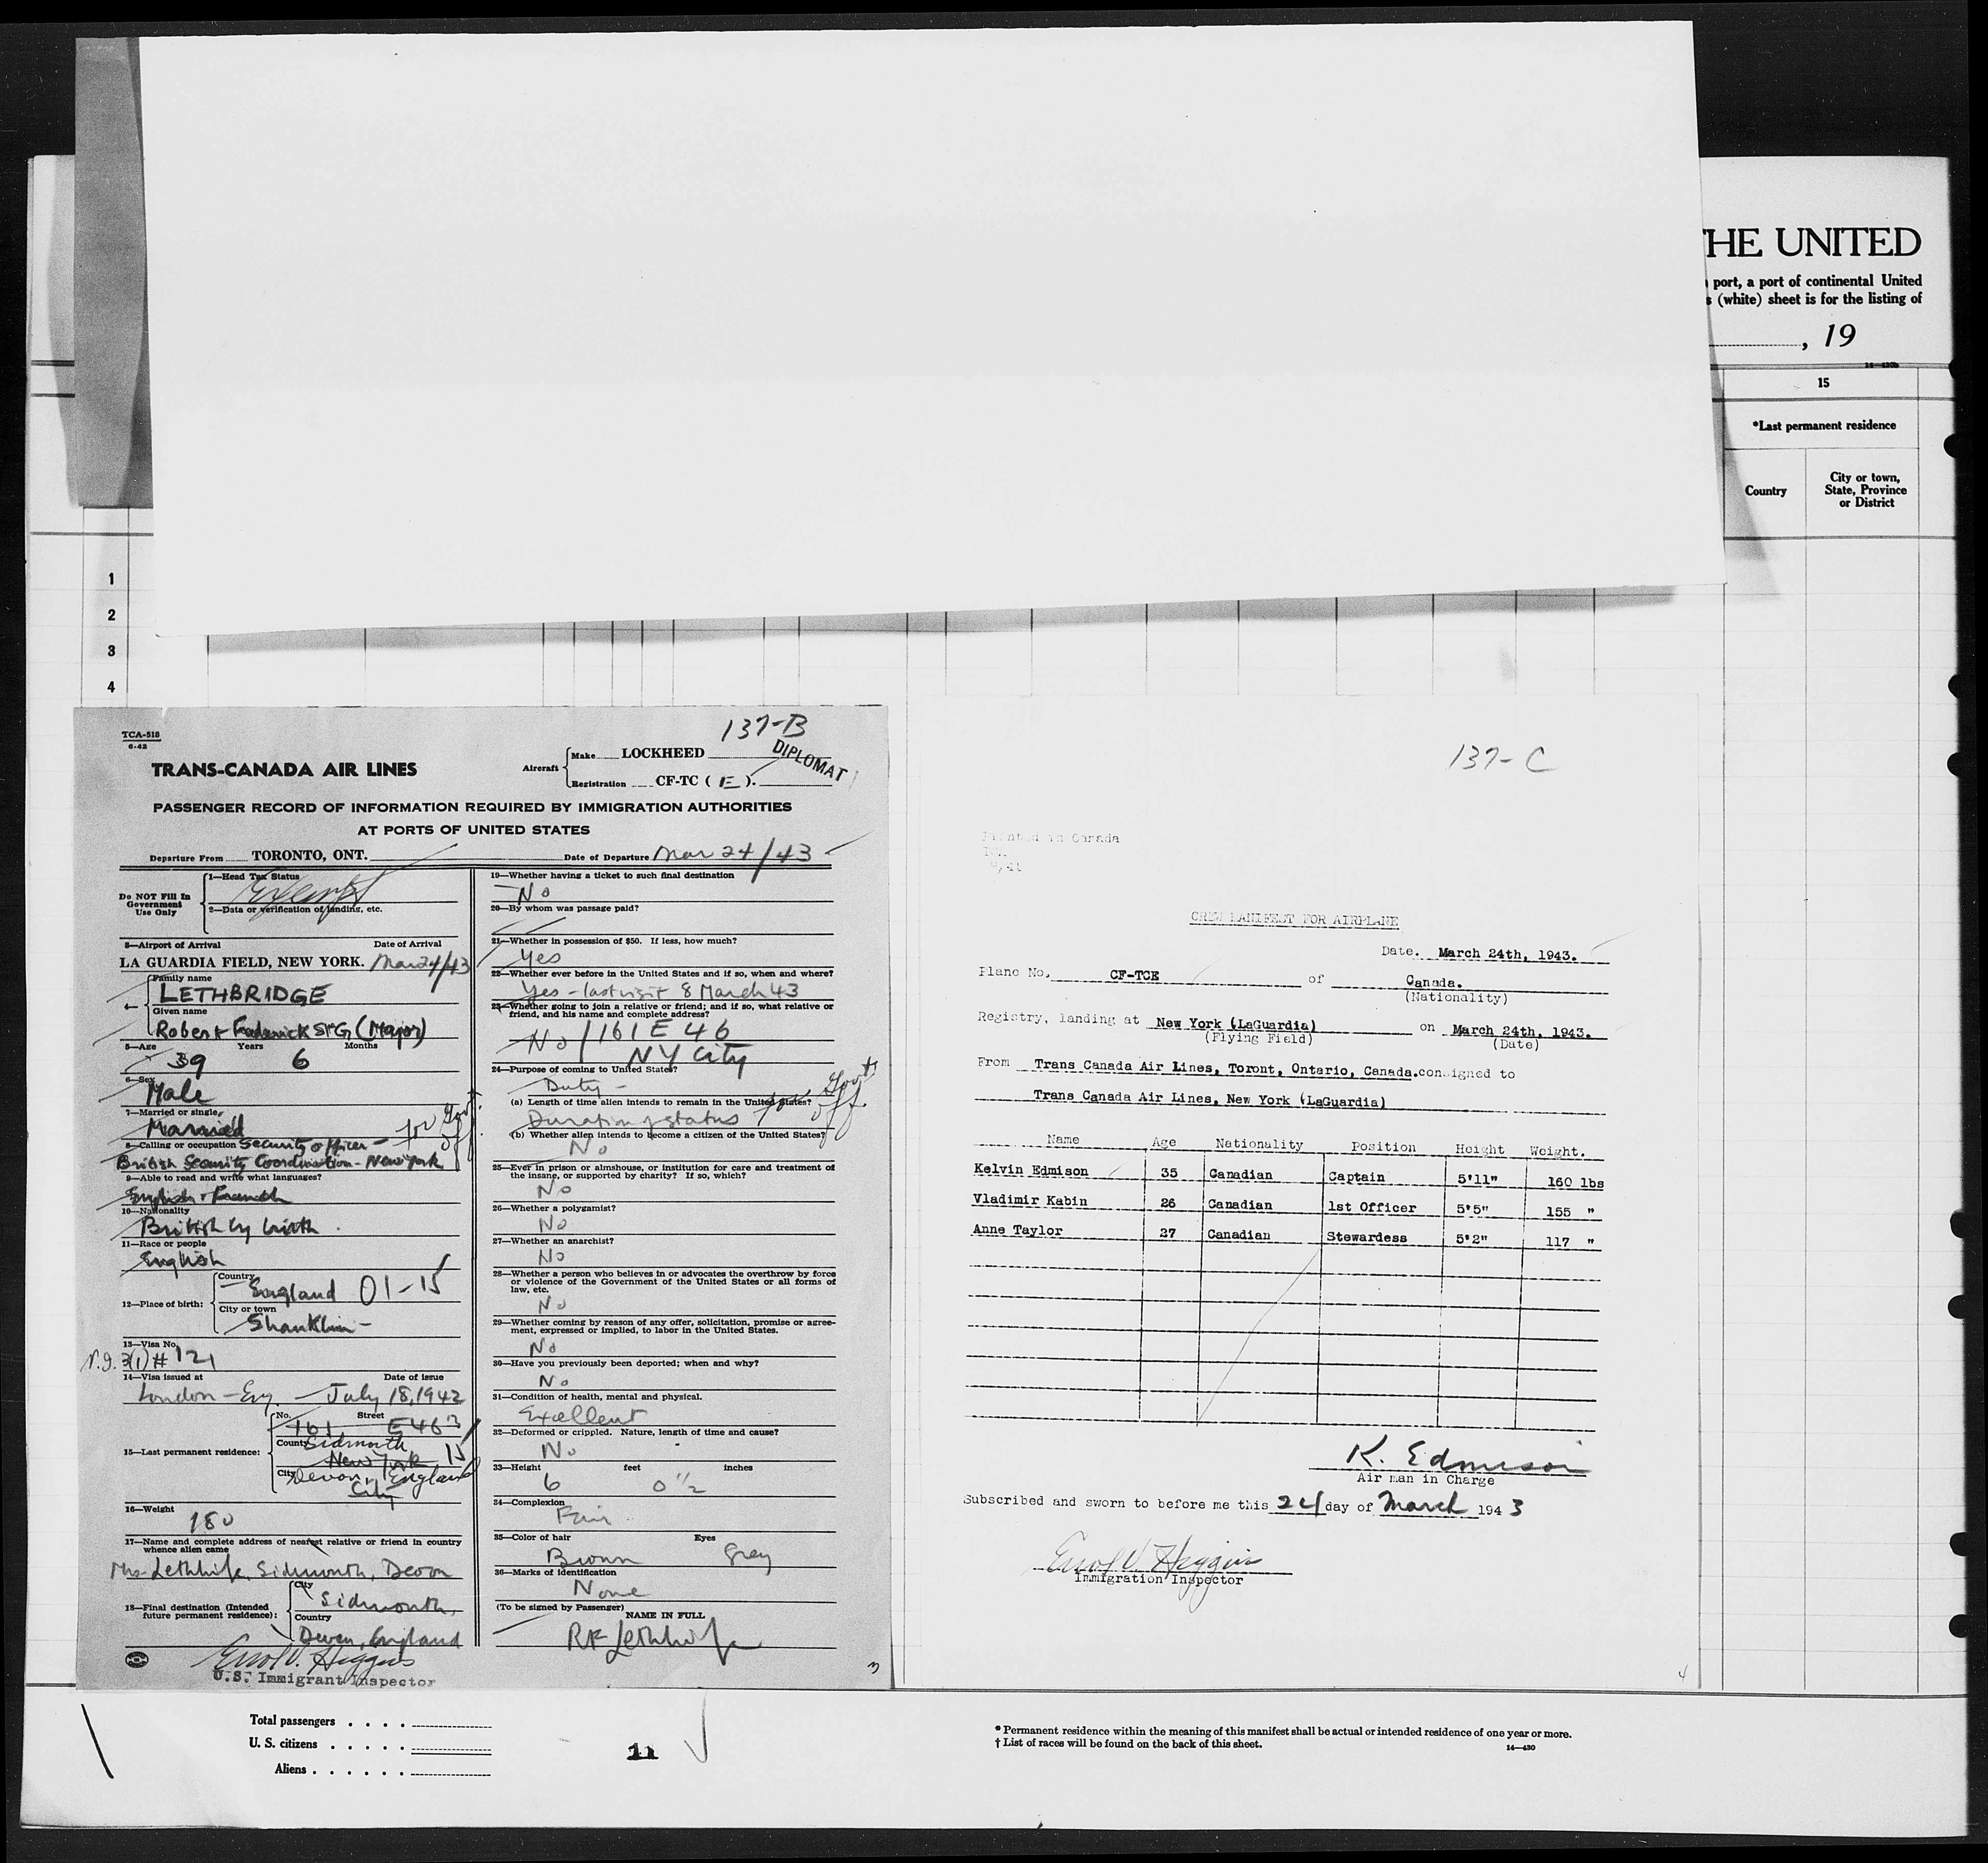 THE UNITED
port, a port of continental United
(white) sheet is for the listing of
, 19
14—430b
15
*Last permanent residence
Country
City or town,
State, Province
or District
1
2
3
4
137-B
TCA-518
6-42
TRANS-CANADA AIR LINES
Aircraft
Make LOCKHEED
Registration CF-TC ( E ).
DIPLOMAT
PASSENGER RECORD OF INFORMATION REQUIRED BY IMMIGRATION AUTHORITIES
AT PORTS OF UNITED STATES
Departure From TORONTO, ONT. Date of Departure Mar 24/43
Do NOT Fill In
Government
Use Only
1—Head Tax Status
Exempt
2—Data or verification of landing, etc.
3—Airport of Arrival Date of Arrival
LA GUARDIA FIELD, NEW YORK. Mar 24/43
Family name
LETHBRIDGE
Given name
Robert Frederick St G (Major)
5—Age Years Months
39 6
6—Sex
Male
7—Married or single
Married
8—Calling or occupation Security Officer -
for Govt. off.
British Security Coordination - New York
9—Able to read and write what languages?
English + French
10—Nationality
British by birth
11—Race or people
English
12—Place of birth:
Country
England 01-15
City or town
Shanklin -
13—Visa No.
3(1) # 121
14—Visa issued at Date of issue
London - Eng. - July 18, 1942
15—Last permanent residence:
No. Street
161 E 46
County Sidmouth
New York 15
City Devon, England
City
16—Weight
180
17—Name and complete address of nearest relative or friend in country
whence alien came
Mrs Lethbridge, Sidmouth, Devon
18—Final destination (Intended
future permanent residence):
City
Sidmouth,
Country
Devon, England
Errol V. Higgins
U.S. Immigrant Inspector
19—Whether having a ticket to such final destination
No
20—By whom was passage paid?
21—Whether in possession of $50. If less, how much?
Yes
22—Whether ever before in the United States and if so, when and where?
Yes - last visit 8 March 43
23—Whether going to join a relative or friend; and if so, what relative or
friend, and his name and complete address?
No / 161 E 46
NY City
24—Purpose of coming to United States?
Duty -
(a) Length of time alien intends to remain in the United States?
Duration of status for Govt. off.
(b) Whether alien intends to become a citizen of the United States?
No
25—Ever in prison or almshouse, or institution for care and treatment of
the insane, or supported by charity? If so, which?
No
26—Whether a polygamist?
No
27—Whether an anarchist?
No
28—Whether a person who believes in or advocates the overthrow by force
or violence of the Government of the United States or all forms of
law, etc.
No
29—Whether coming by reason of any offer, solicitation, promise or agree-
ment, expressed or implied, to labor in the United States.
No
30—Have you previously been deported; when and why?
No
31—Condition of health, mental and physical.
Excellent
32—Deformed or crippled. Nature, length of time and cause?
No
33—Height feet inches
6 0 1/2
34—Complexion
Fair
35—Color of hair Eyes
Brown Grey
36—Marks of identification
None
(To be signed by Passenger)
NAME IN FULL
RF Lethbridge
3
137-C
Printed in Canada
CREW MANIFEST FOR AIRPLANE
Date. March 24th, 1943.
Plane No. CF-TCE of Canada.
(Nationality)
Registry, landing at New York (LaGuardia) on March 24th, 1943.
(Flying Field) (Date)
From Trans Canada Air Lines, Toront, Ontario, Canada. consigned to
Trans Canada Air Lines, New York (LaGuardia)
Name Age Nationality Position Height Weight.
Kelvin Edmison 35 Canadian Captain 5'11" 160 lbs
Vladimir Kabin 26 Canadian 1st Officer 5'5" 155 "
Anne Taylor 27 Canadian Stewardess 5'2" 117 "
K. Edmison
Air man in Charge
Subscribed and sworn to before me this 24 day of March 1943
Errol V. Higgins
Immigration Inspector
4
Total passengers . . . .
U. S. citizens . . . . .
Aliens . . . . . .
11
* Permanent residence within the meaning of this manifest shall be actual or intended residence of one year or more.
† List of races will be found on the back of this sheet.
14—430